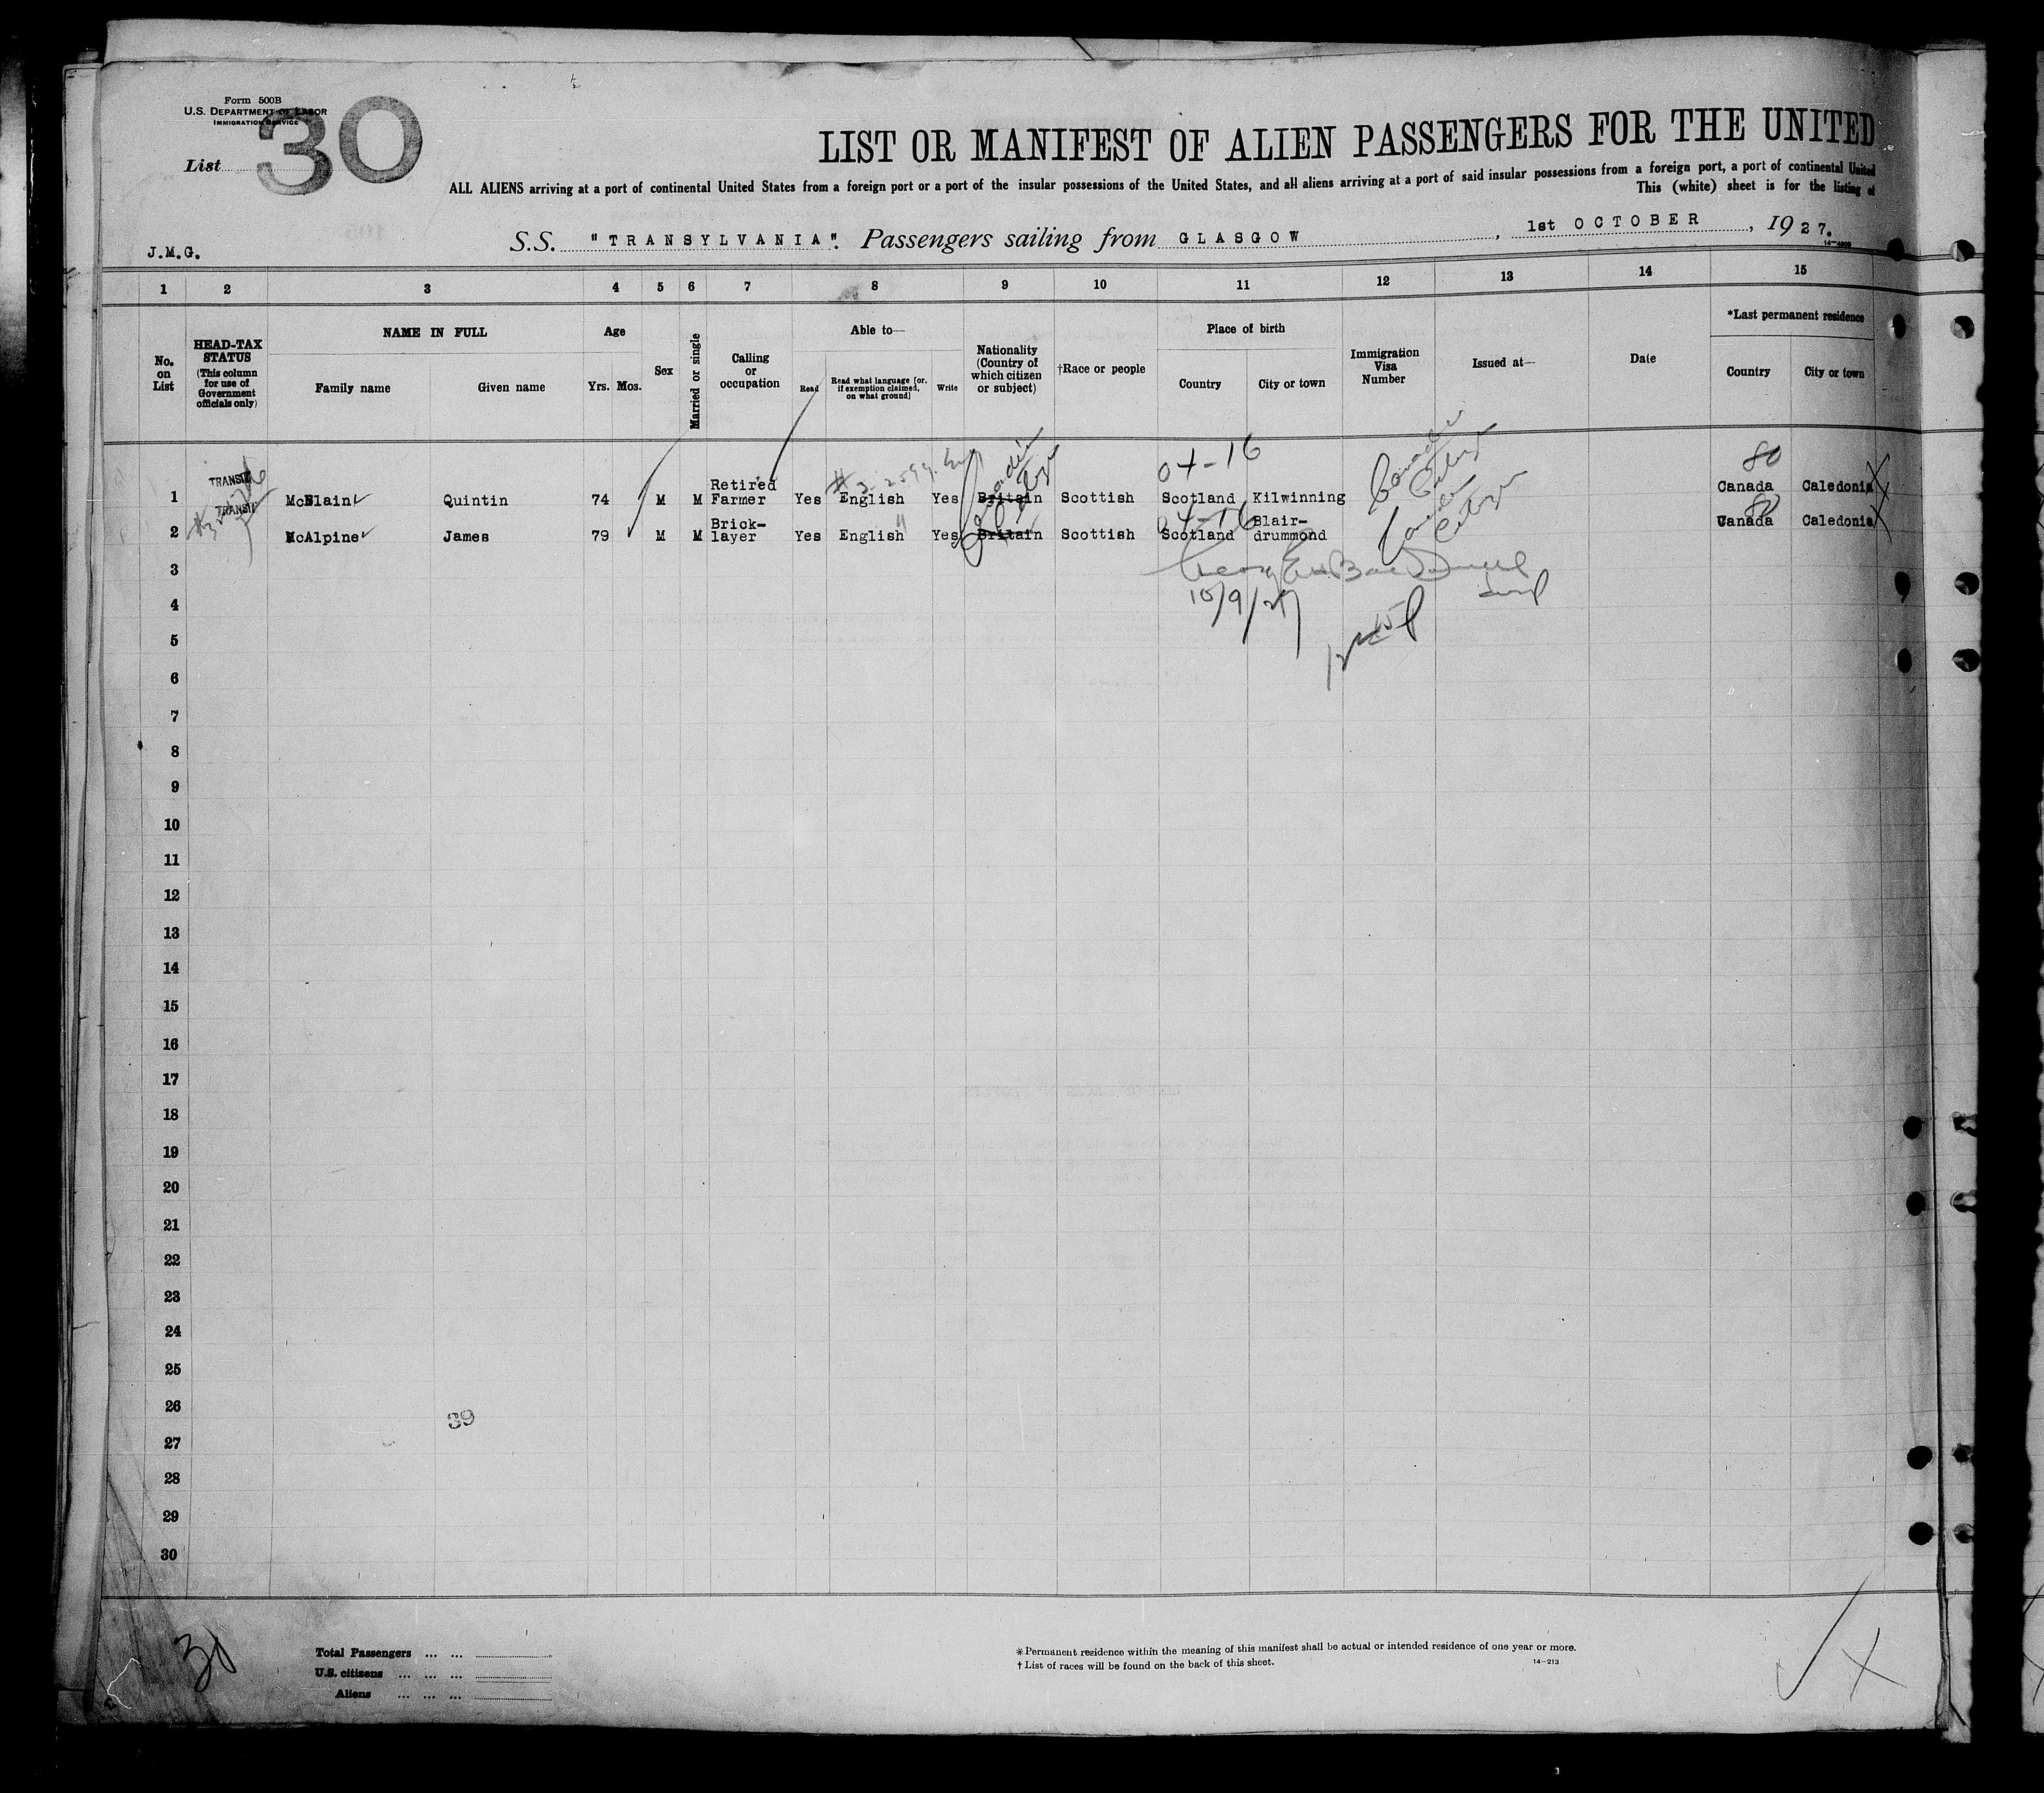 Form 500B
U.S. DEPARTMENT OF LABOR
IMMIGRATION SERVICE
List 30
LIST OR MANIFEST OF ALIEN PASSENGERS FOR THE UNITED
ALL ALIENS arriving at a port of continental United States from a foreign port or a part of the insular possessions of the United States, and all aliens arriving at a port of said insular possessions from a foreign port, a port of continental United
This (white) sheet is for the listing of
J.M.G.
S.S. "TRANSYLVANIA". Passengers sailing from GLASGOW, 1st OCTOBER, 1927.
14-4200
1 2 3 4 5 6 7 8 9 10 11 12 13 14 15
No. on List
HEAD-TAX STATUS (This column for use of Government officials only)
NAME IN FULL
Family name Given name
Age
Yrs. Mos.
Sex
Married or single
Calling or occupation
Able to—
Read
Read what language [or, if exemption claimed, on what ground]
Write
Nationality (Country of which citizen or subject)
†Race or people
Place of birth
Country City or town
Immigration Visa Number
Issued at—
Date
*Last permanent residence
Country City or town
04-16
80
1 TRANSIT McBlain Quintin 74 M M Retired Farmer Yes English Yes Britain Scottish Scotland Kilwinning Canada Caledonia
04-16
80
2 TRANSIT McAlpine James 79 M M Brick-layer Yes English Yes Britain Scottish Scotland Blair-drummond Canada Caledonia
Canadian Citizen
Canadian Citizen
10/9/27
3
4
5
6
7
8
9
10
11
12
13
14
15
16
17
18
19
20
21
22
23
24
25
26
39
27
28
29
30
30
Total Passengers ... ...
U.S. citizens ... ... ...
Aliens ... ... ...
*Permanent residence within the meaning of this manifest shall be actual or intended residence of one year or more.
†List of races will be found on the back of this sheet.
14-213